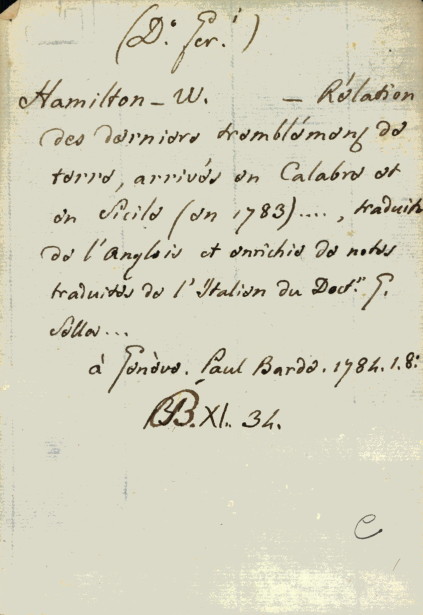 (D.º Ger.ⁱ)
Hamilton - W. - Rélation
des derniers tremblémens de
terre, arrivés en Calabre et
en Sicile (en 1783)...., traduite
de l'Anglois et enrichie de notes
traduites de l'Italien du Doct.ʳ G.
Sella...
à Genève. Paul Barde. 1784. 1. 8º
BB. XI. 34.
C